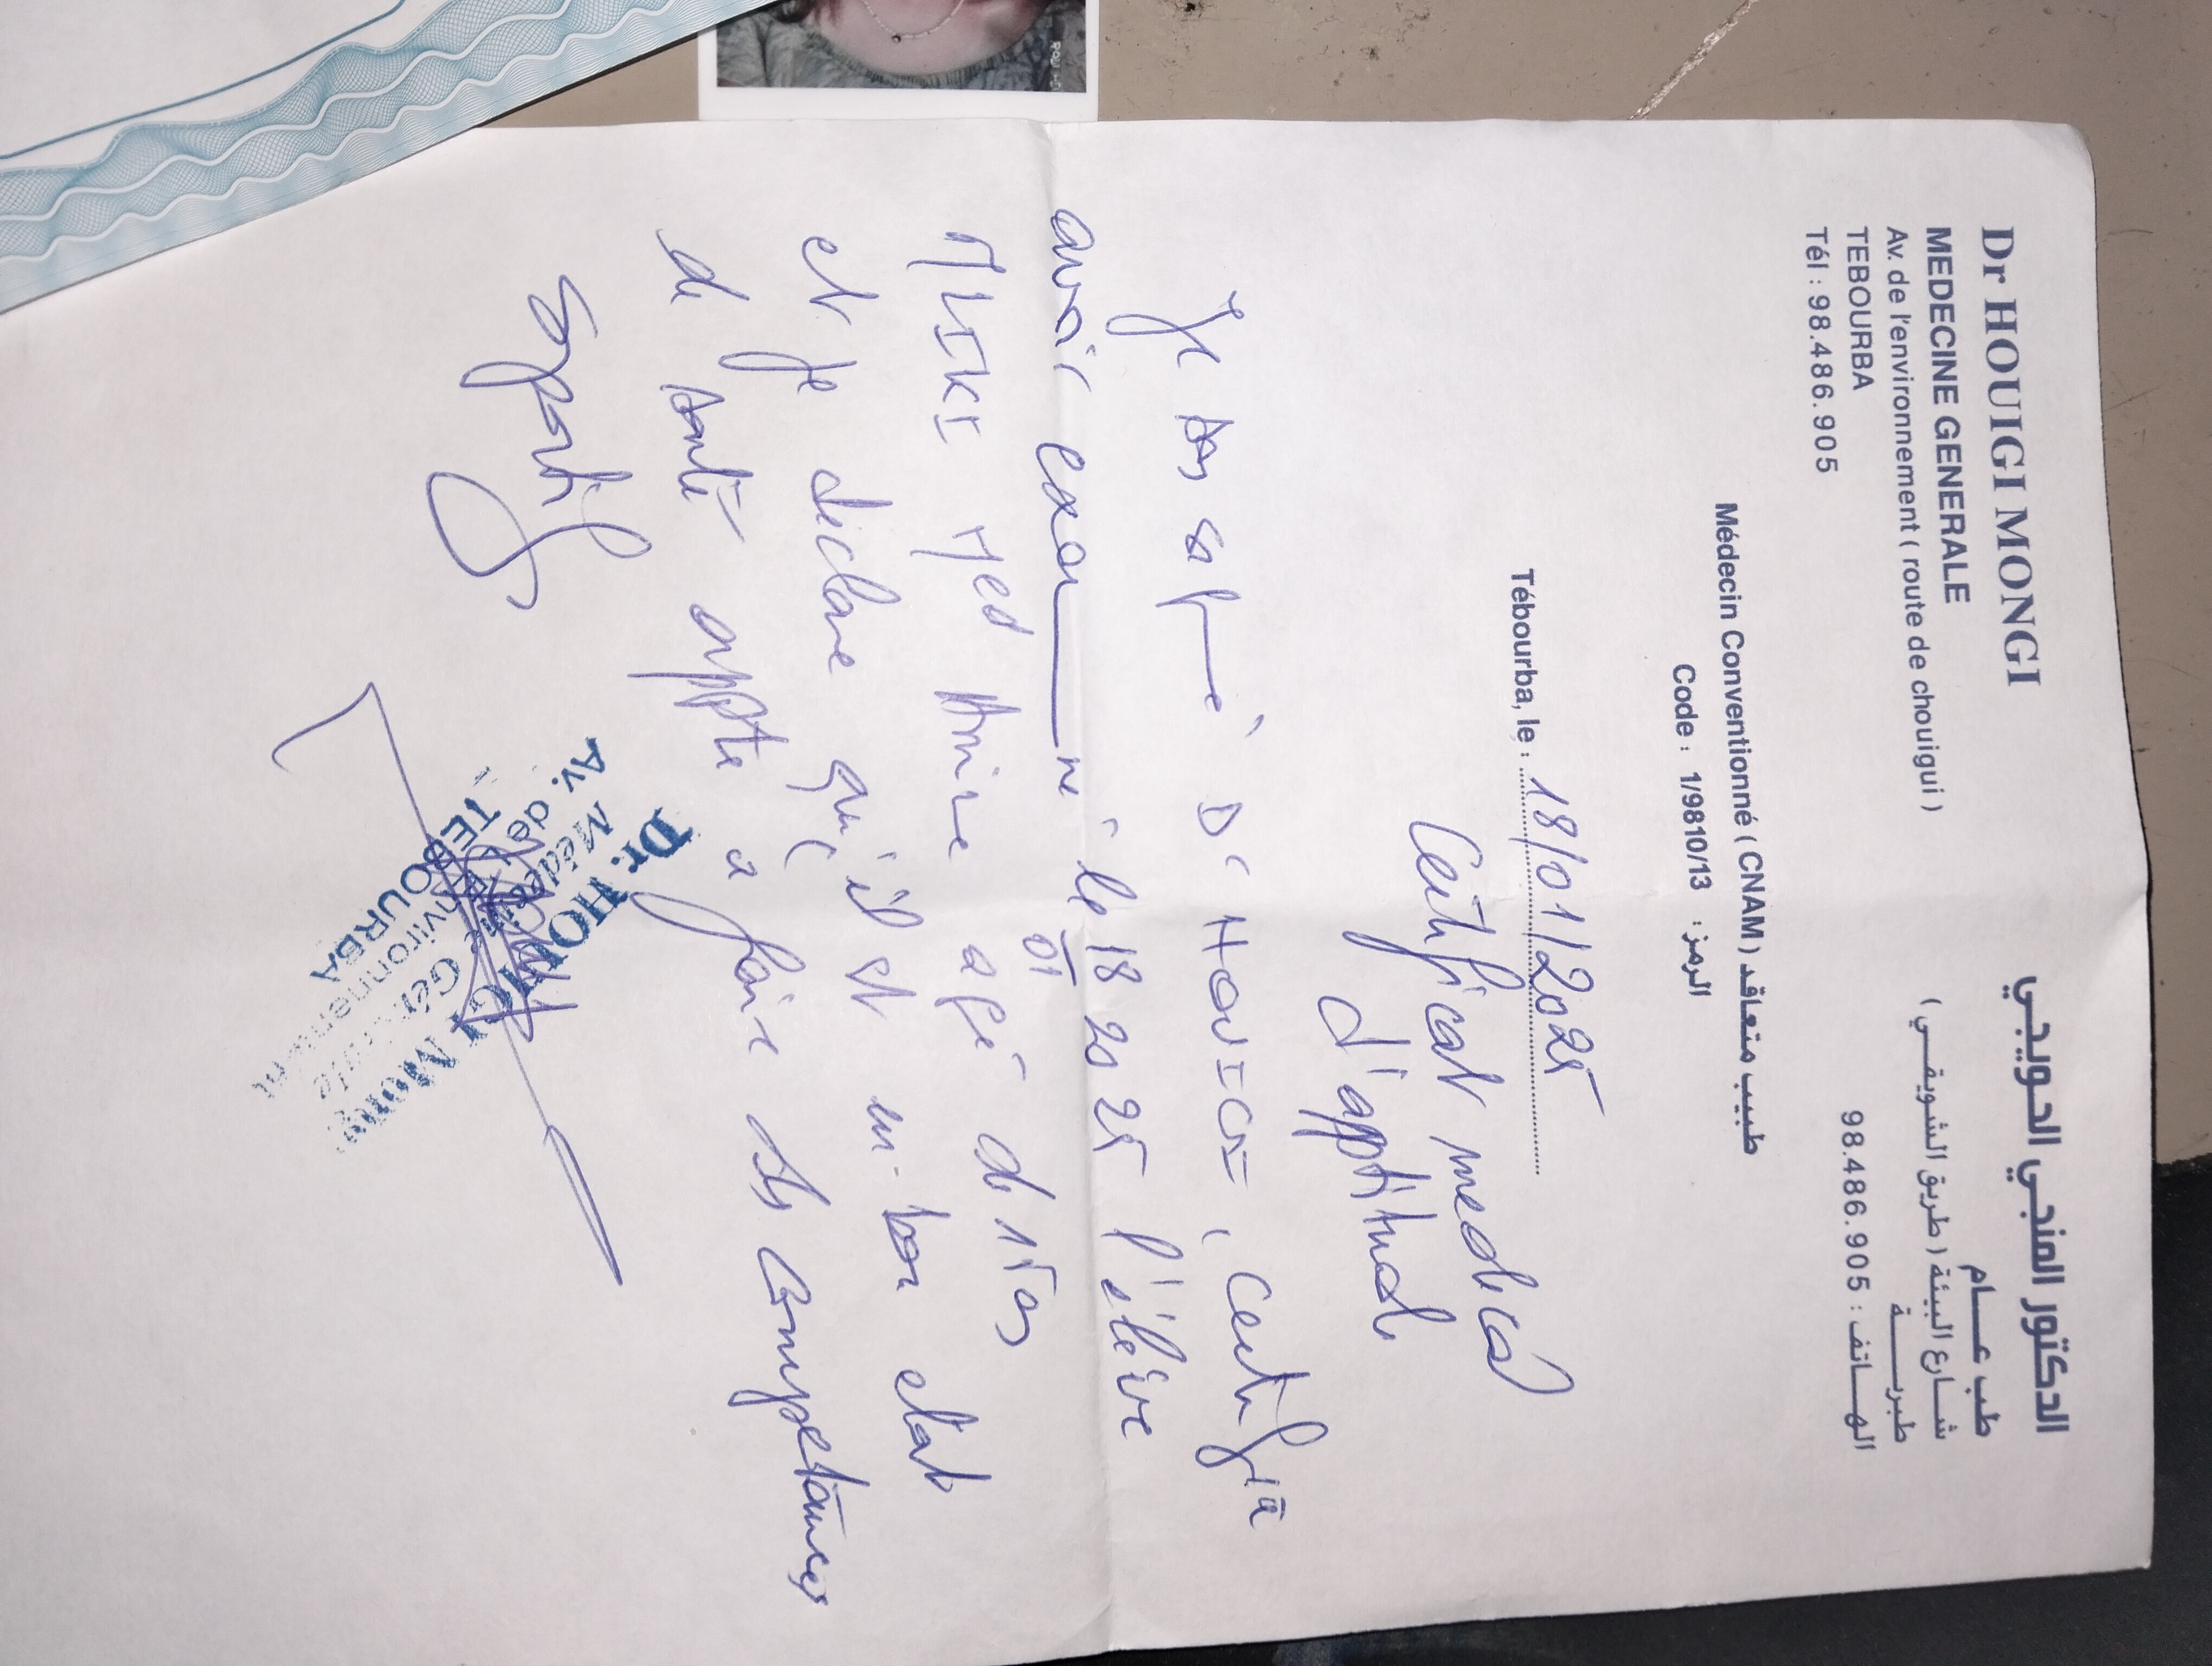 Dr HOUIGI MONGI
MEDECINE GENERALE
Av. de l'environnement ( route de chouigui )
TEBOURBA
Tél : 98.486.905
الدكتور المنجي الحويجي
طب عــــام
شــارع البيئة ( طريق الشويقــي )
طبربـــــة
الهــاتف : 98.486.905
Médecin Conventionné ( CNAM ) طبيب متعاقد
Code : 1/9810/13 : الرمز
Tébourba, le : 18/01/2025
Certificat medical
d'apptitude
Je Dr HOUIGI, certifie
avoir examiné le 18 01 2025 l'élève
MLIKI Med Amine agé de 15 ans
et je déclare qu'il est en bon etat
de santé appte a faire des competances
sportif
Dr. HOUIGI Mongi
Médecine Générale
Av. de l'Environnement
TEBOURBA